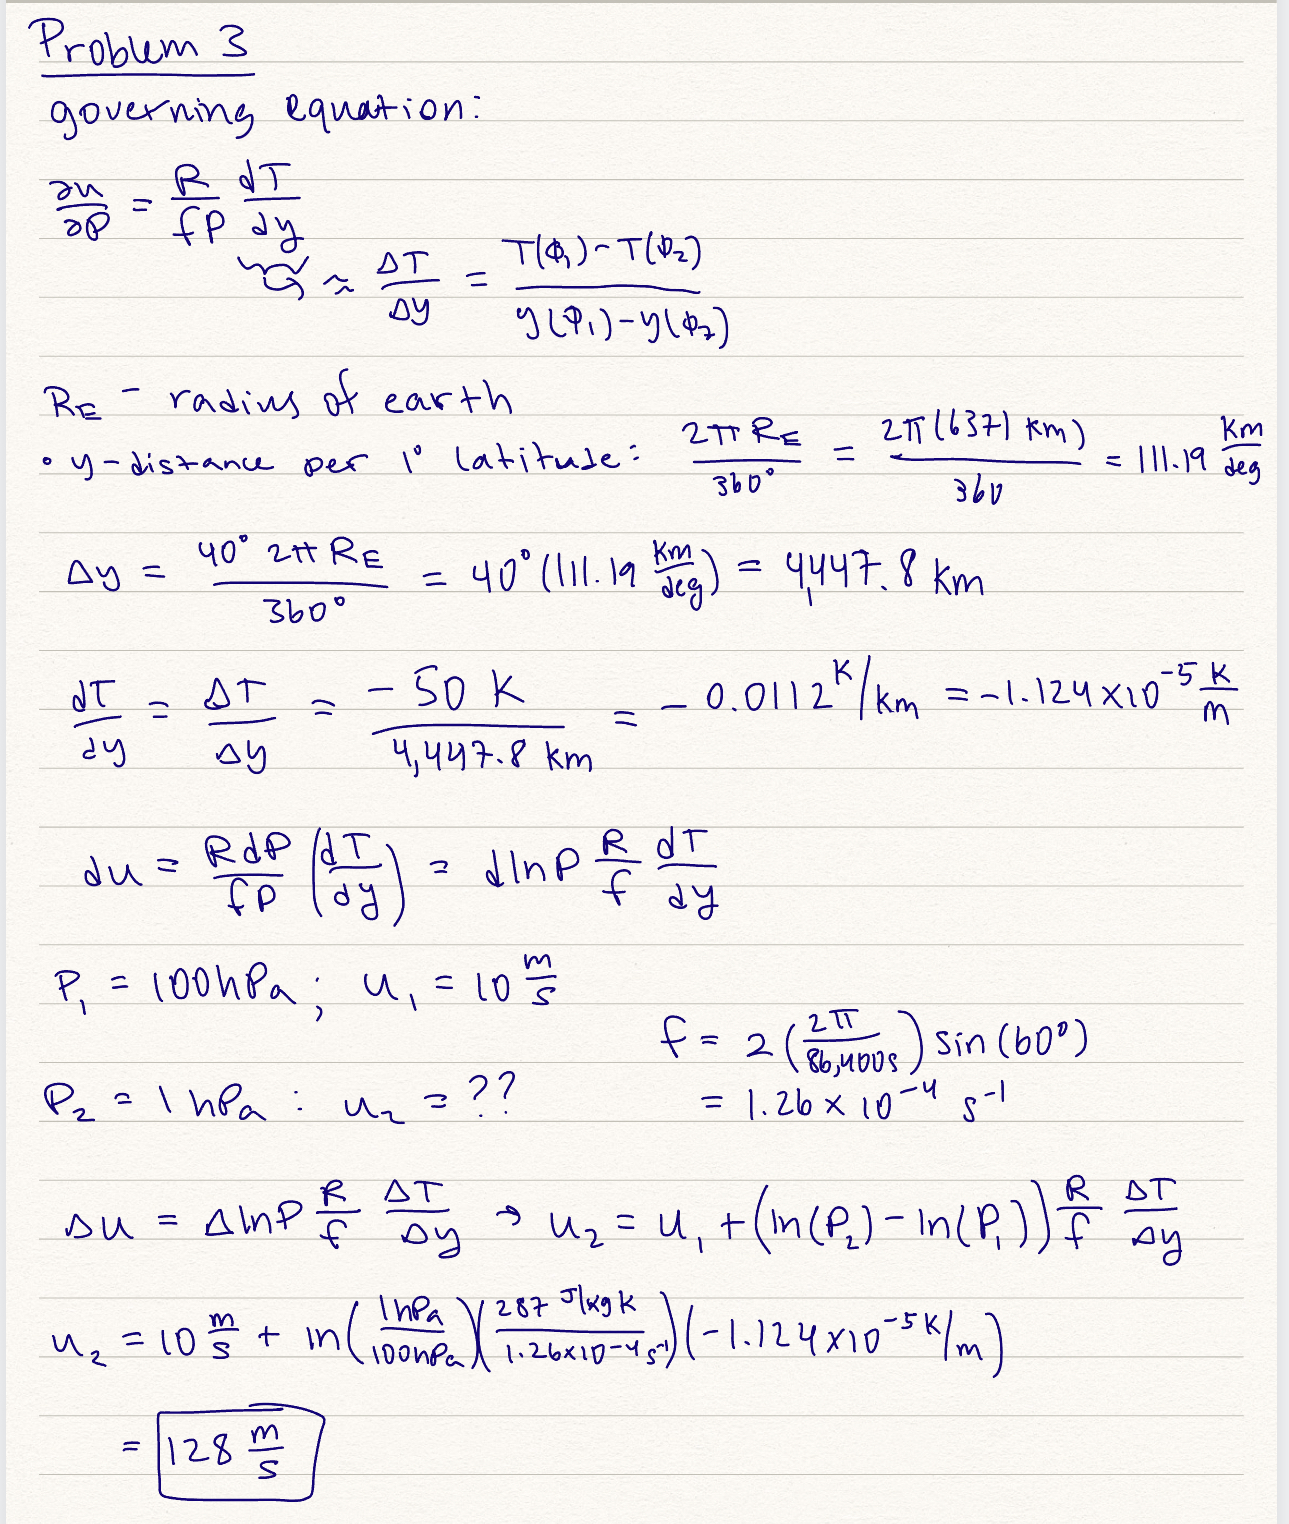 Problem 3
governing equation:
∂u/∂P = R/fP dT/dy
≈ ΔT/Δy = T(ϕ₁)-T(ϕ₂)/y(ϕ₁)-y(ϕ₂)
R_E - radius of earth
• y-distance per 1° latitude: 2π R_E/360° = 2π(6371 km)/360 = 111.19 km/deg
Δy = 40° 2π R_E/360° = 40°(111.19 km/deg) = 4,447.8 km
dT/dy = ΔT/Δy = -50 K/4,447.8 km = -0.0112 K/km = -1.124 x10⁻⁵ K/m
du = RdP/fP (dT/dy) = dlnP R/f dT/dy
P₁ = 100hPa; u₁ = 10 m/s
f = 2(2π/86,400s) sin(60°)
P₂ = 1 hPa : u₂ = ??
= 1.26 x 10⁻⁴ s⁻¹
Δu = ΔlnP R/f ΔT/Δy → u₂ = u₁ + (ln(P₂) - ln(P₁)) R/f ΔT/Δy
u₂ = 10 m/s + ln(1hPa/100hPa)(287 J/kgK/1.26x10⁻⁴ s⁻¹)(-1.124 x10⁻⁵ K/m)
= 128 m/s